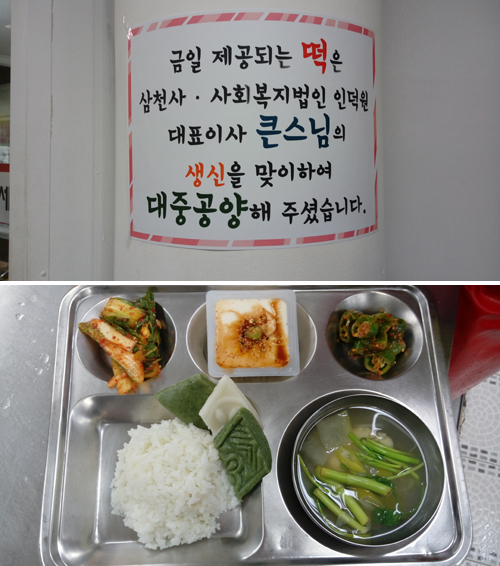 금일 제공되는 떡은
삼천사 · 사회복지법인 인덕원
대표이사 큰스님의
생신을 맞이하여
대중공양해 주셨습니다.